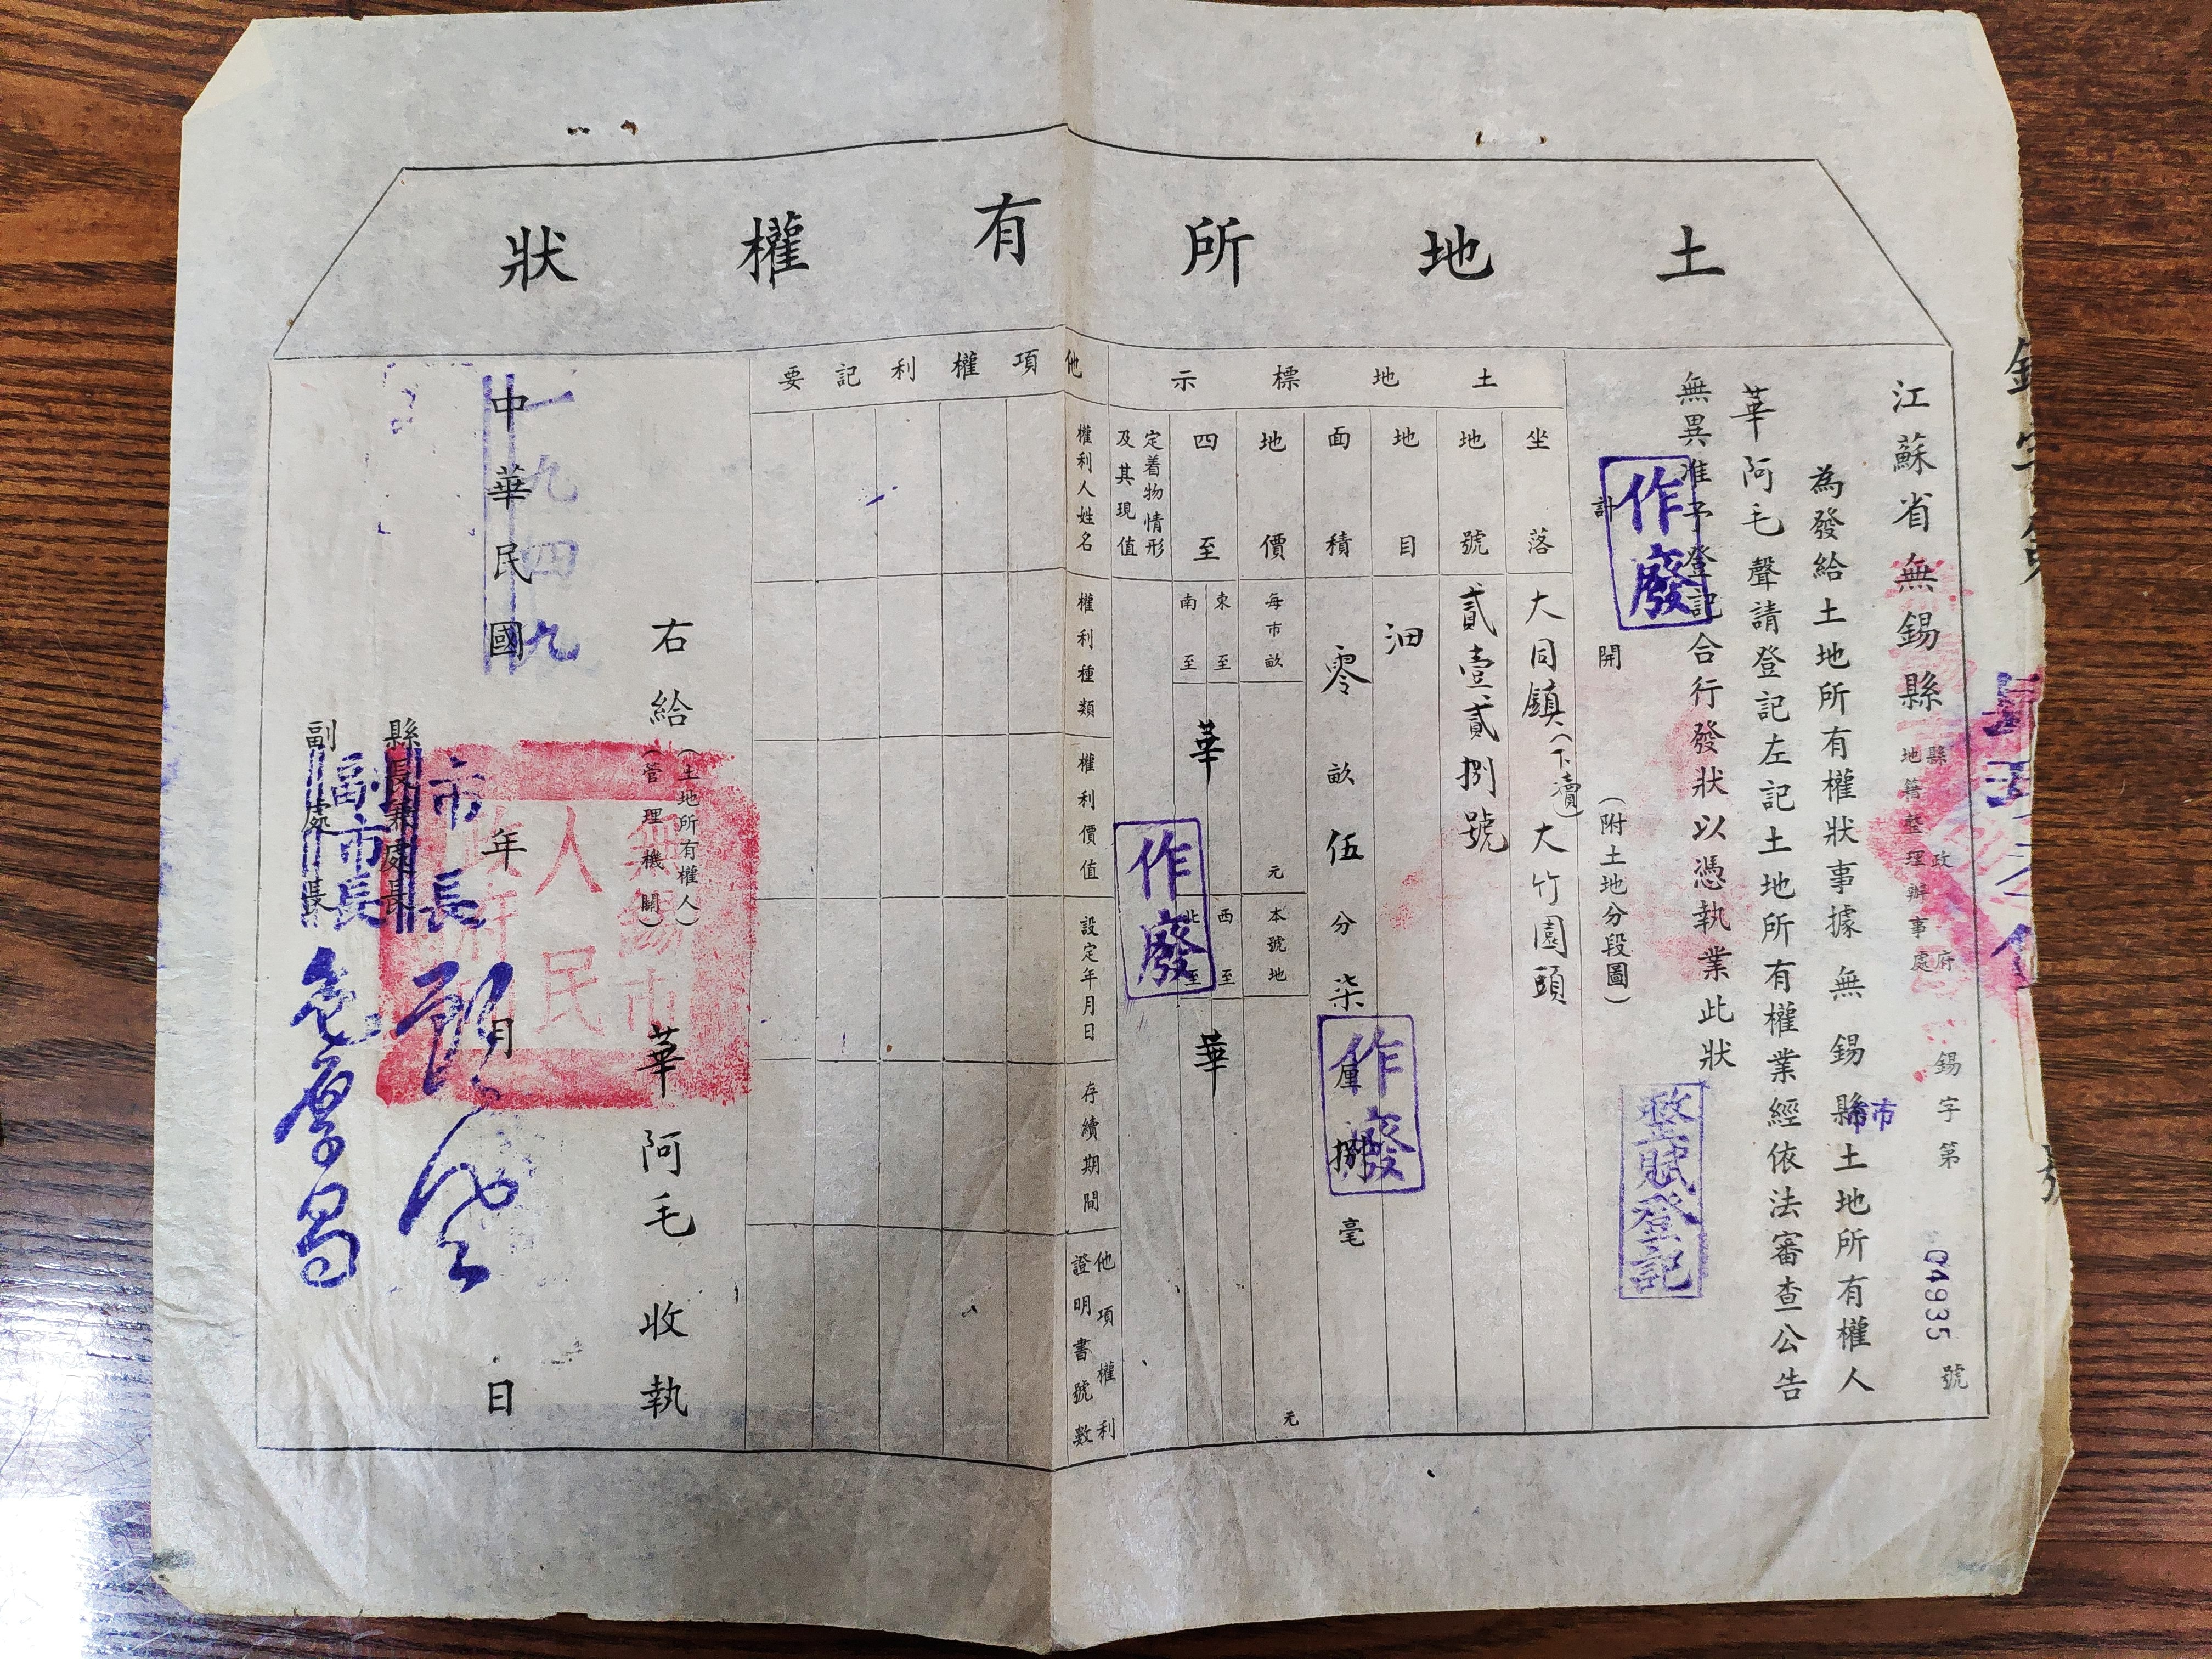 土地所有權狀
江蘇省無錫縣
縣政府
地籍整理辦事處
錫字第04935號
為發給土地所有權狀事據無錫縣土地所有權人
市
華阿毛聲請登記左記土地所有權業經依法審查公告
無異准予登記合行發狀以憑執業此狀
作廢
整賦登記
計開
(附土地分段圖)
土地標示
坐落
大同鎮(下瀆)大竹園頭
地號
貳壹貳捌號
地目
面積
零畝伍分柒厘捌毫
作廢
地價
每市畝
元
本號地
元
四至
東至
南至
華
西至
北至
華
作廢
定着物情形
及其現值
他項權利記要
權利人姓名
權利種類
權利價值
設定年月日
存續期間
他項權利
證明書號數
右給
(土地所有權人)
(管理機關)
華阿毛收執
無錫市
人民
政府
一九四九
中華民國年月日
市長
縣長兼處長
副市長
副處長